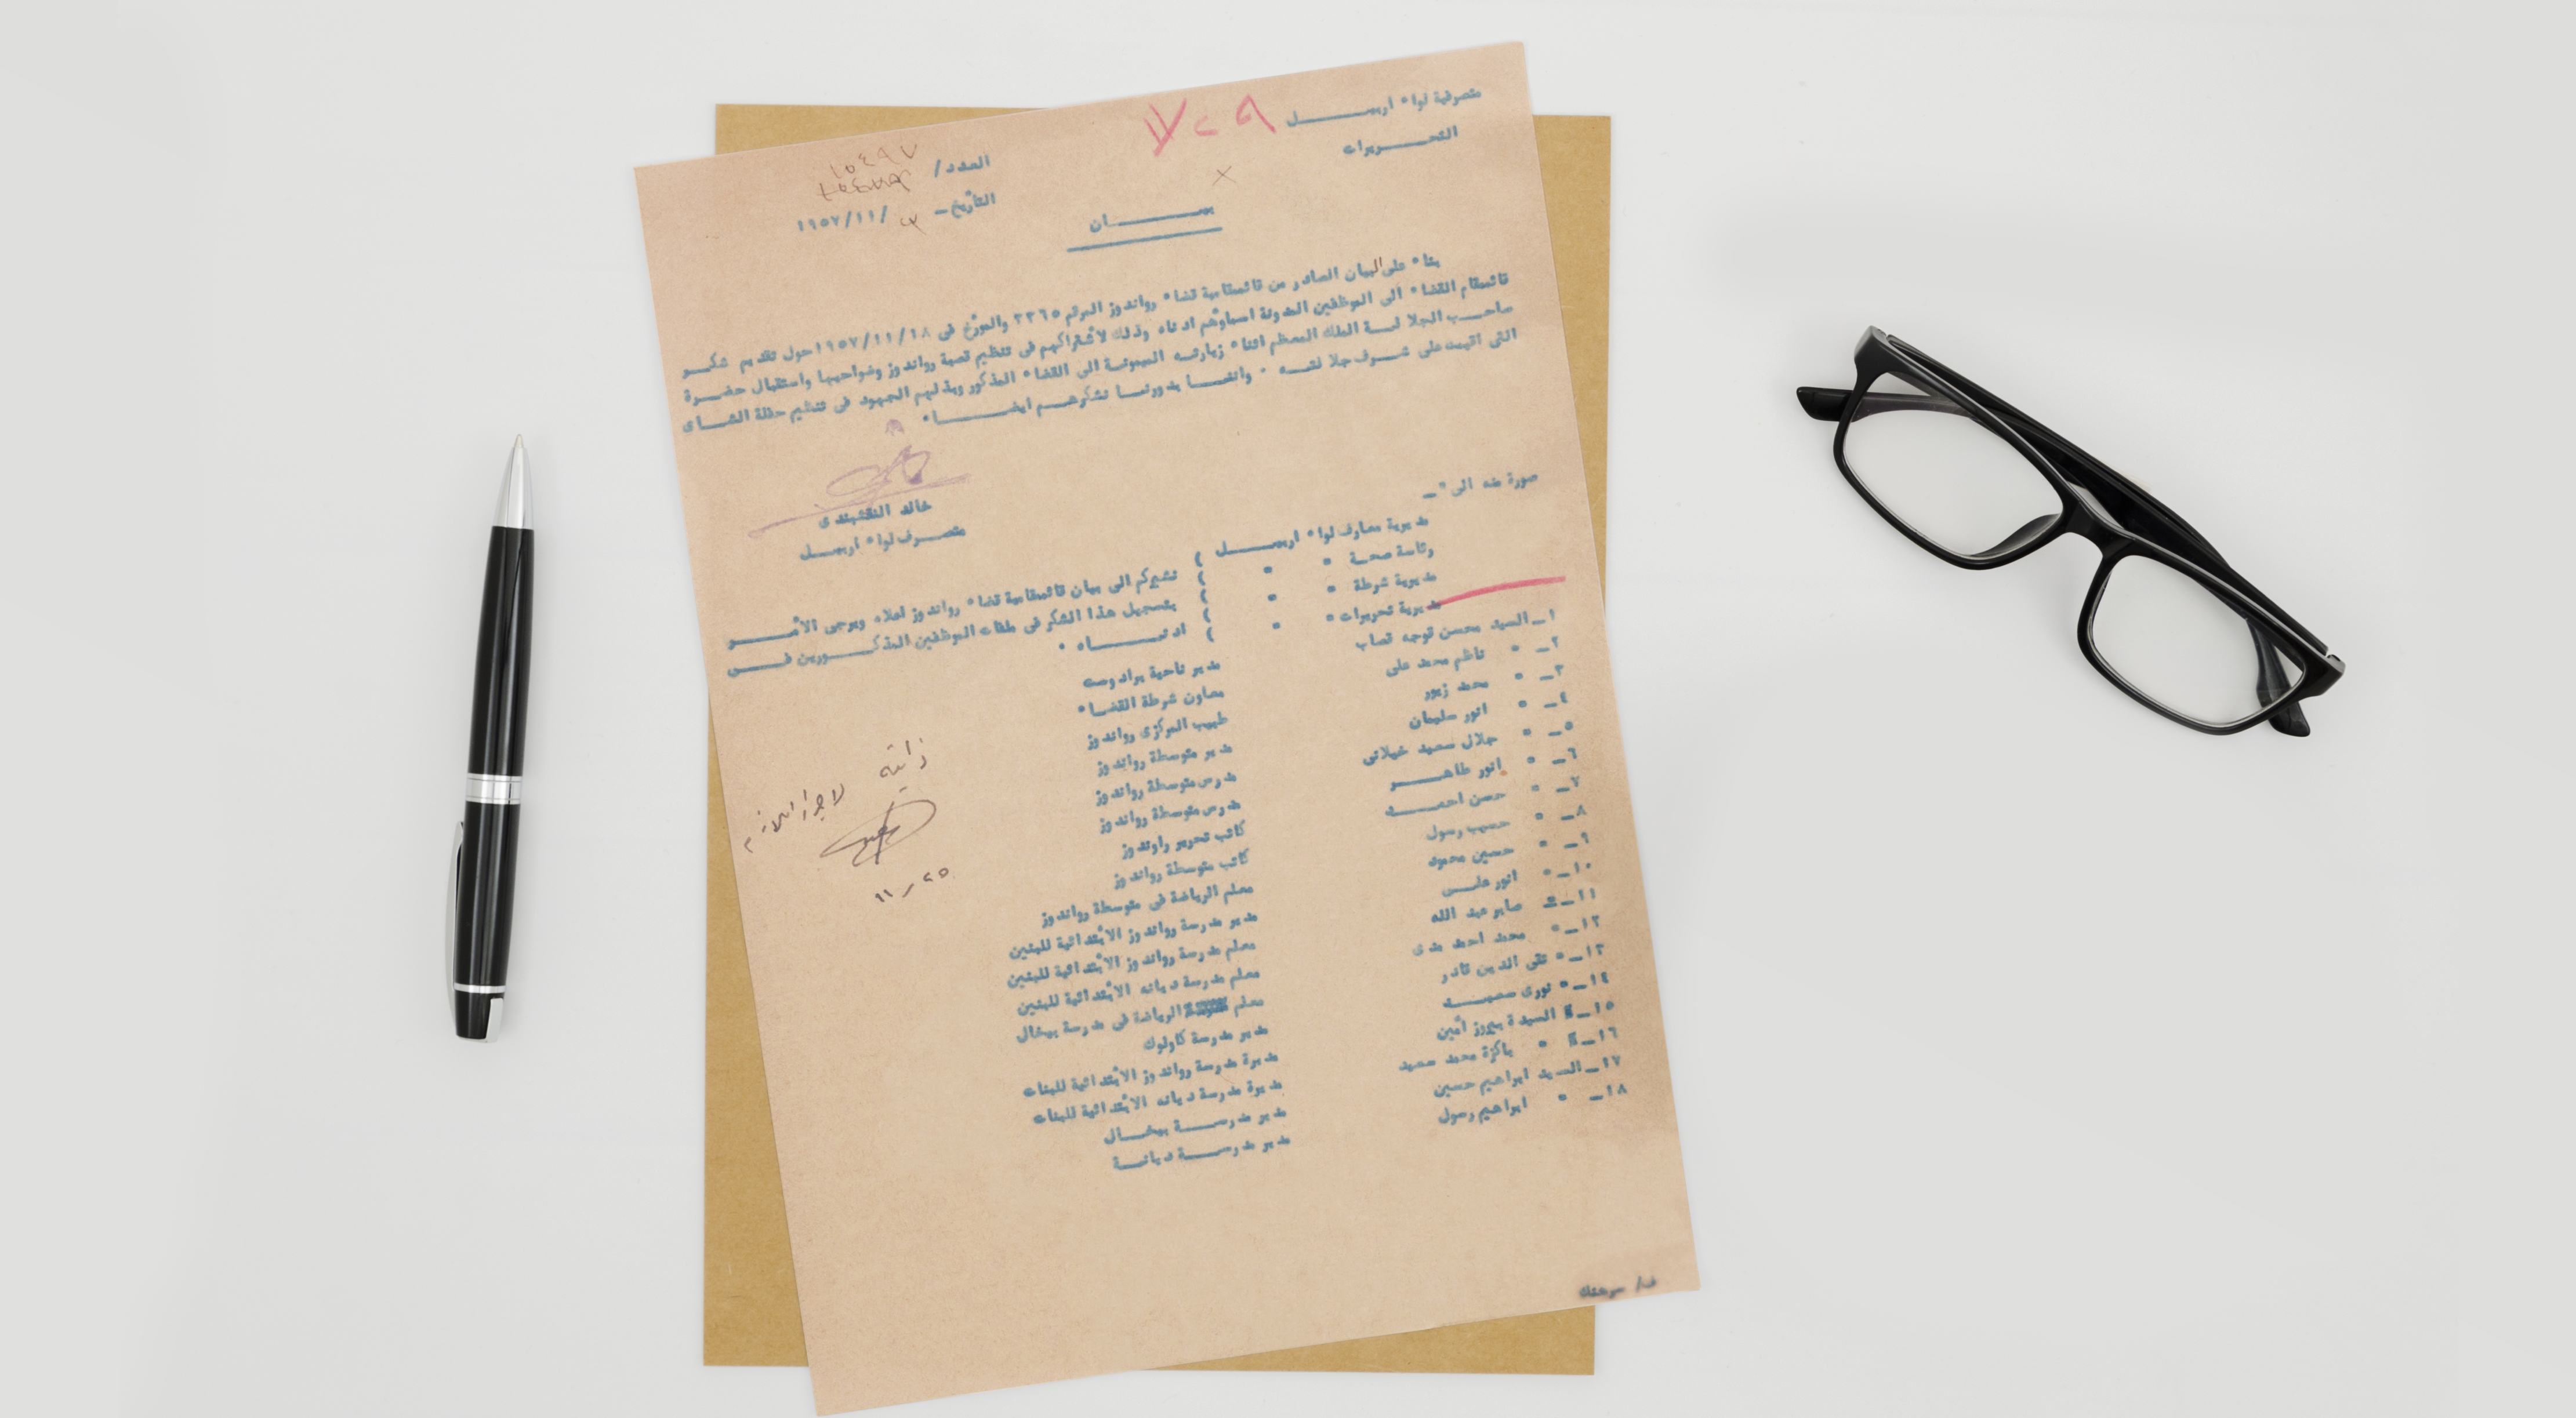 متصرفية لواء اربيـــــل
التحـــــريرات
٧٢٩
العدد/ ١٥٤٩٧
التأريخ ـ ٣ /١٩٥٧/١١
بيـــــــان
بناء على البيان الصادر من قائممقامية قضاء رواندوز المرقم ٣٣٦٥ والمؤرخ في ١٩٥٧/١١/١٨ حول تقديم شكـــر
قائممقام القضاء الى الموظفين المدونة اسماؤهم ادناه وذلك لأشتراكهم في تنظيم قصبة رواندوز وضواحيها واستقبال حضـــرة
صاحـــب الجلالـــة الملك المعظم اثناء زيارتـــه الميمونـــة الى القضاء المذكور وبذلهم الجهود في تنشيم حفلة الشـــاى
التي اقيمت على شـــرف جلالتـــه ٠ واننـــا بدورنـــا نشكرهـــم ايضـــــا ٠
خالد النقشبندى
متصـــرف لواء اربيـــل
صورة منه الى ـ
مديرية معارف لواء اربيـــــل (
رئاسة صحة " " (
مديرية شرطة " " (
مديرية تحريرات " " (
نشيركم الى بيان قائممقامية قضاء رواندوز اعلاه ويرجى الأمـــــر
بتسجيل هذا الشكر في ملفات الموظفين المذكـــــورين فـــي
ادنـــــاه ٠
١ـ السيد محسن توجه قصاب مدير ناحية برادوست
٢ـ " ناظم محمد على معاون شرطة القضـــاء
٣ـ " محمد زيور طبيب المركزى رواندوز
٤ـ " انور سليمان مدير متوسطة رواندوز
٥ـ " جلال سعيد خيلانى مدرس متوسطة رواندوز
٦ـ " انور طاهـــــر مدرس متوسطة رواندوز
٧ـ " حسن احمـــــد كاتب تحرير راوندوز
٨ـ " حسيب رسول كاتب متوسطة رواندوز
٩ـ " حسين محمود معلم الرياضة في متوسطة رواندوز
١٠ـ " انور علـــى مدير مدرسة رواندوز الأبتدائية للبنين
١١ـ " صابر عبد الله معلم مدرسة رواندوز الأبتدائية للبنين
١٢ـ " محمد احمد مدى معلم مدرسة ديانه الأبتدائية للبنين
١٣ـ " تقى الدين قادر معلم الرياضة في مدرسة بيخال
١٤ـ " نورى سعيـــــد مدير مدرسة كاولوك
١٥ـ السيدة بيروز أمين مديرة مدرسة رواندوز الأبتدائية للبنات
١٦ـ " باكزة محمد سعيد مديرة مدرسة ديانه الأبتدائية للبنات
١٧ـ السيد ابراهيم حسين مدير مدرســـــة بيخـــال
١٨ـ " ابراهيم رسول مدير مدرســـــة ديانـــة
ذاتية
لاجراء اللازم
١١/٢٥
ف/ سرهنك